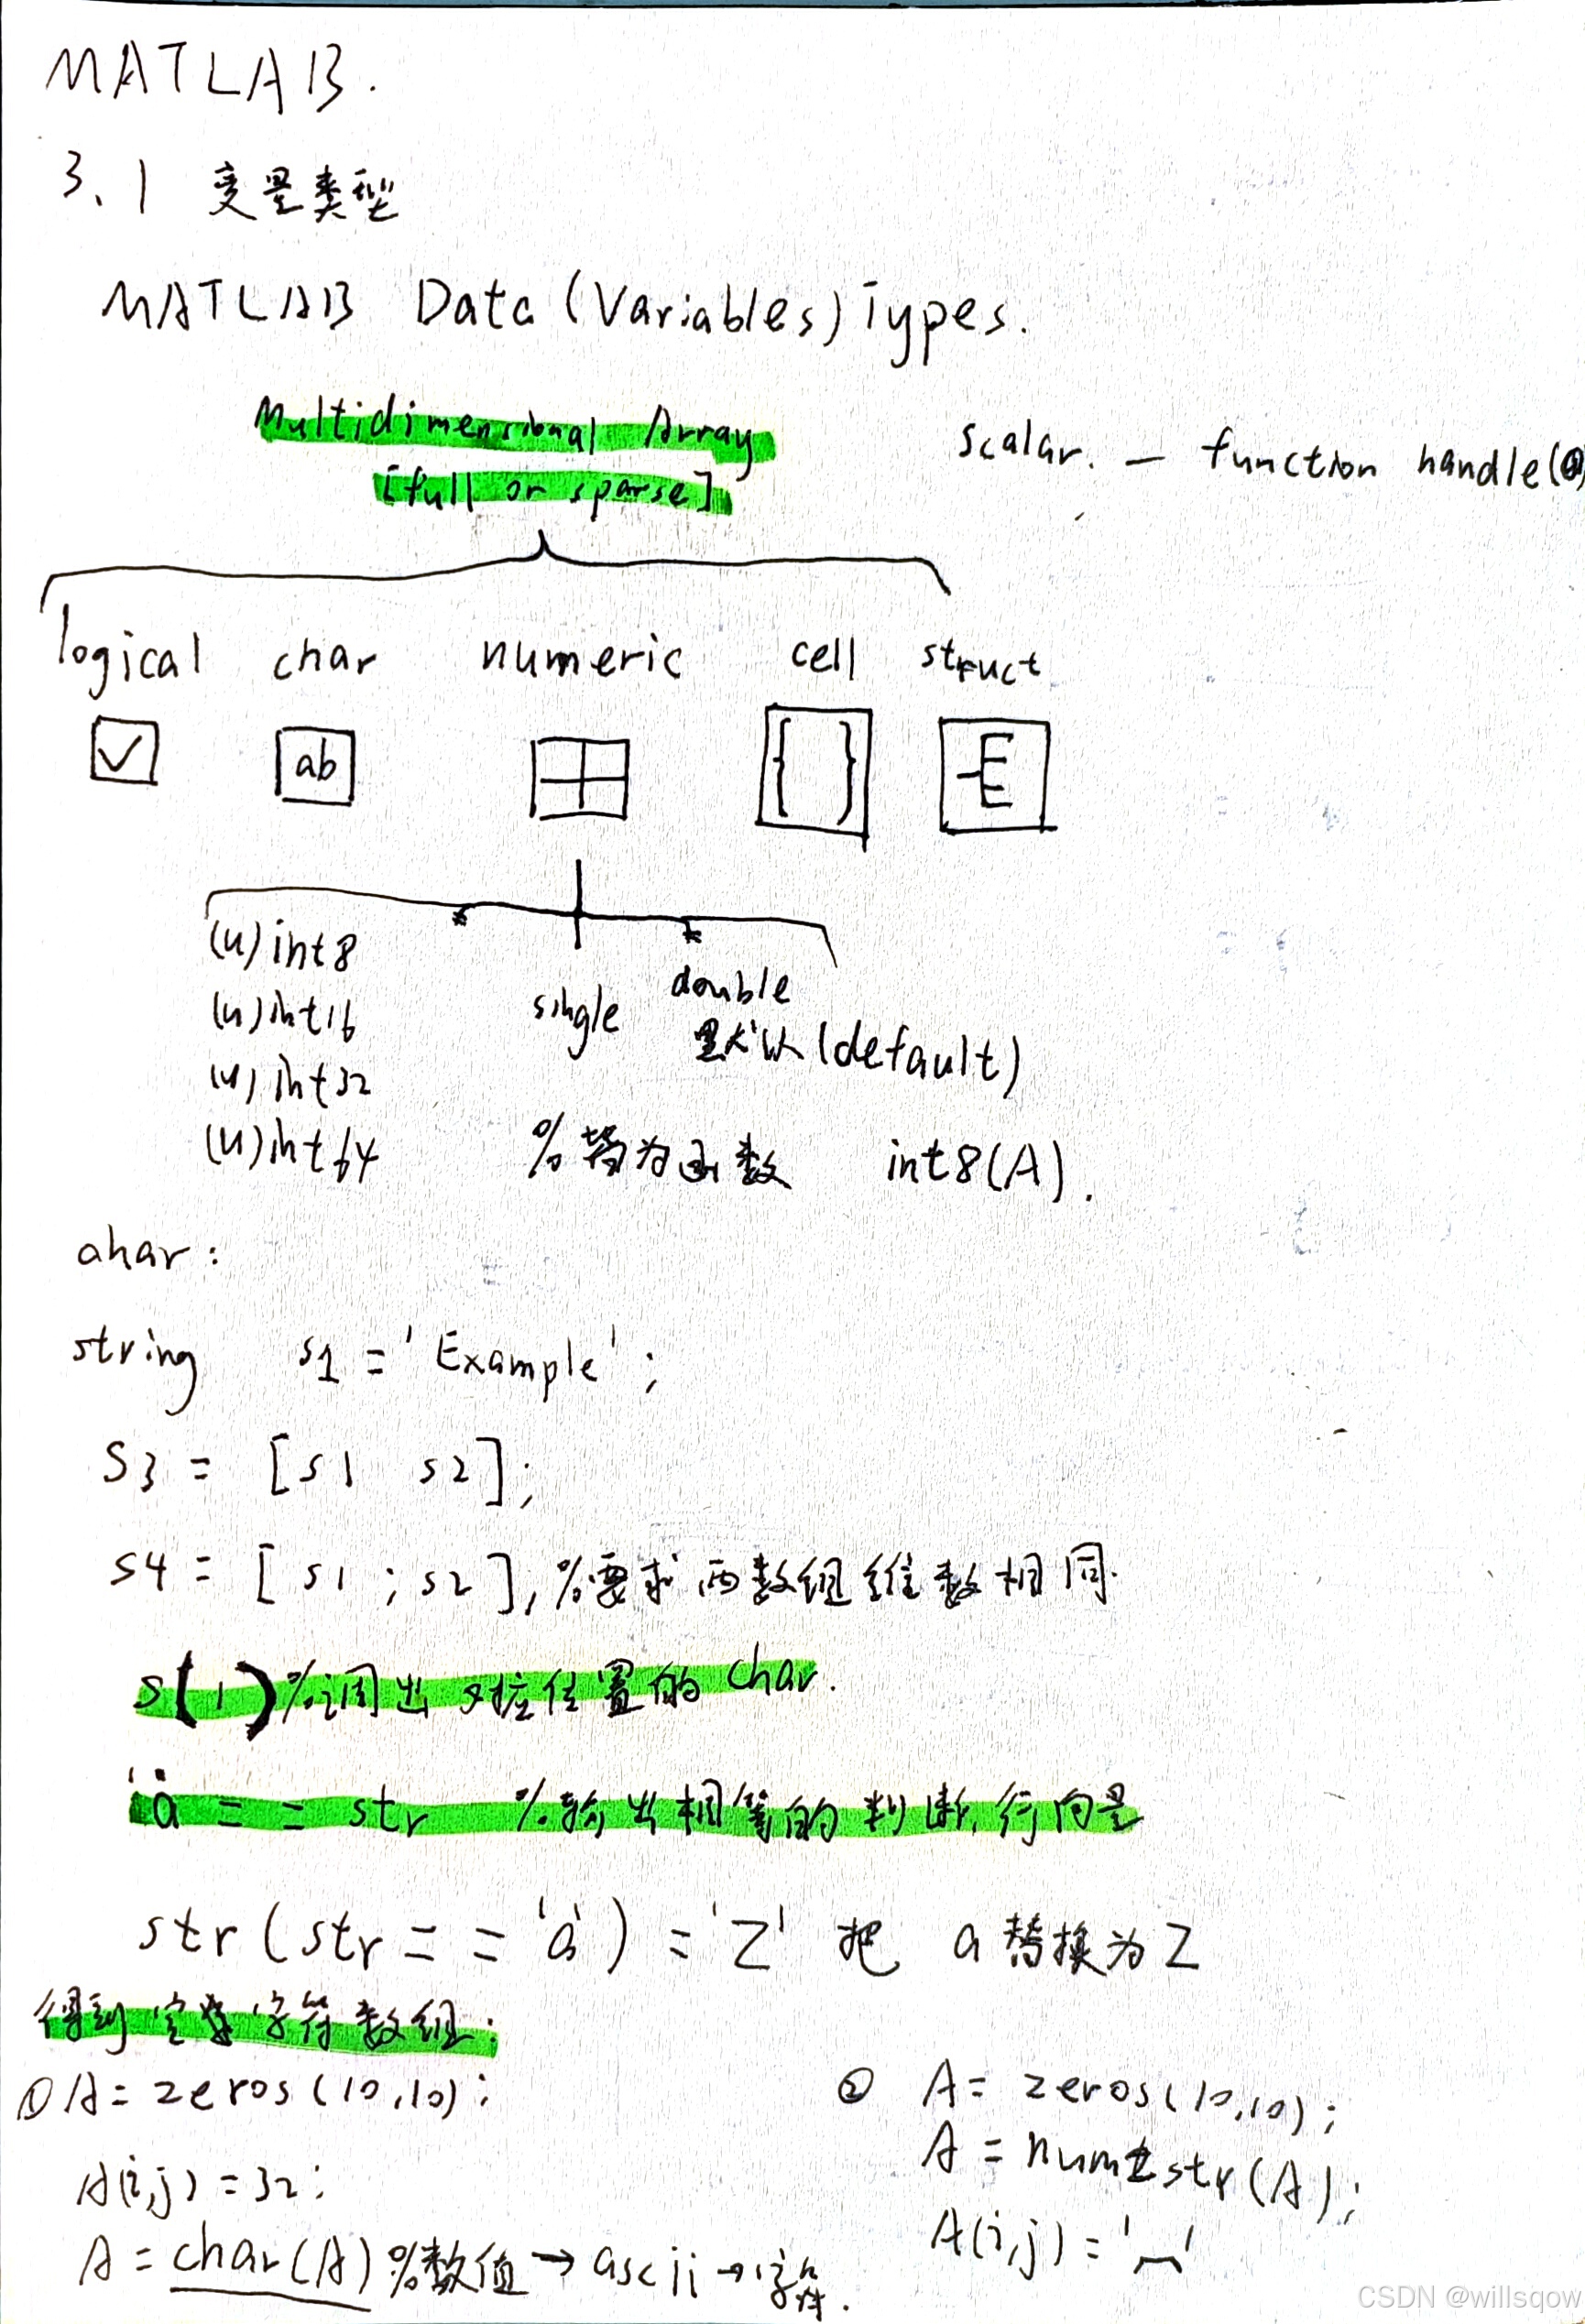 MATLAB.
3.1 变量类型
MATLAB Data (Variables) Types.
Multidimensional Array
[full or sparse]
scalar. — function handle(@)
logical char numeric cell struct
ab
{ }
(u)int8
(u)int16
(u)int32
(u)int64
single
double
默认(default)
%皆为函数 int8(A).
char:
string s1 = 'Example';
S3 = [s1 s2];
s4 = [s1 ; s2], %要求两数组维数相同.
s(1) %调出对应位置的char.
'a' == str %输出相等的判断行向量
str(str == 'a') = 'Z' 把 a替换为Z
得到空字符数组:
① A = zeros(10,10);
A(i,j) = 32;
A = char(A) %数值→ascii→字符.
② A = zeros(10,10);
A = num2str(A);
A(i,j) = ' '
CSDN @willsqow